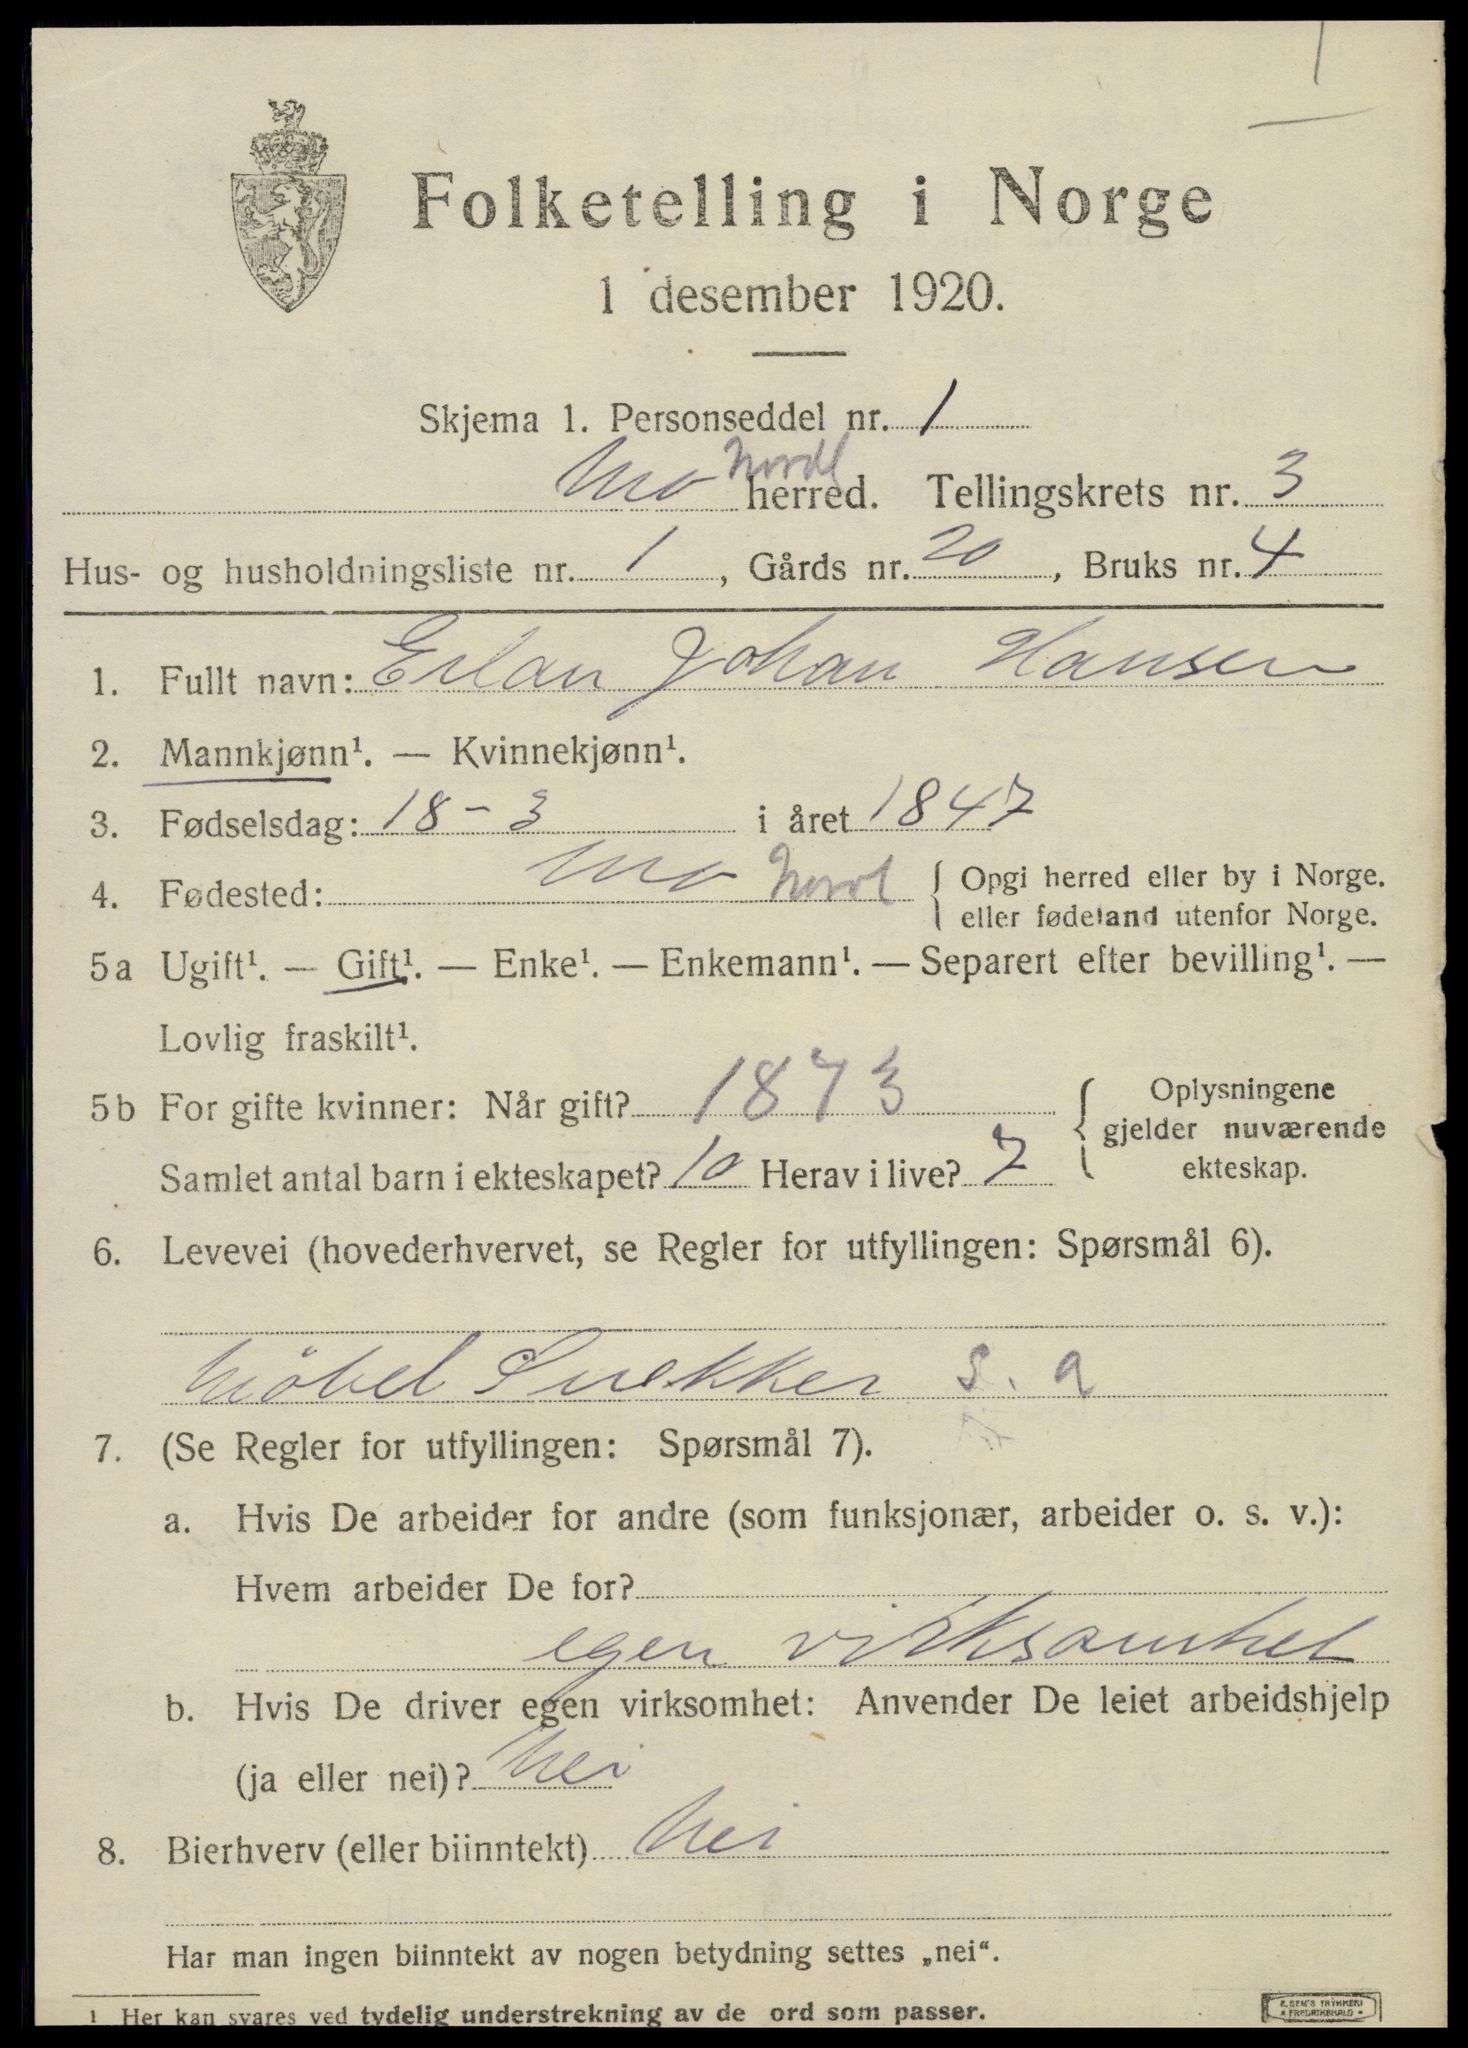 Folketelling i Norge
1 desember 1920.
Skjema 1. Personseddel nr. 1
Mo Nordl herred. Tellingskrets nr. 3
Hus- og husholdningsliste nr. 1, Gårds nr. 20, Bruks nr. 4
1. Fullt navn: Erlan Johan Hansen
2. Mannkjønn¹. — Kvinnekjønn¹.
3. Fødselsdag: 18 - 3 i året 1847
4. Fødested: Mo Nordl { Opgi herred eller by i Norge.
eller fødeland utenfor Norge.
5a Ugift¹. — Gift¹. — Enke¹. — Enkemann¹. — Separert efter bevilling¹. —
Lovlig fraskilt¹.
5b For gifte kvinner: Når gift? 1873 { Oplysningene
gjelder nuværende
Samlet antal barn i ekteskapet? 10 Herav i live? 7 ekteskap.
6. Levevei (hovederhvervet, se Regler for utfyllingen: Spørsmål 6).
Möbel Snekker s. a
7. (Se Regler for utfyllingen: Spørsmål 7).
a. Hvis De arbeider for andre (som funksjonær, arbeider o. s. v.):
Hvem arbeider De for?
egen virksamhet
b. Hvis De driver egen virksomhet: Anvender De leiet arbeidshjelp
(ja eller nei)? Nei
8. Bierhverv (eller biinntekt) Nei
Har man ingen biinntekt av nogen betydning settes „nei“.
1 Her kan svares ved tydelig understrekning av de ord som passer.
E. SEM'S TRYKKERI
FREDRIKSHALD